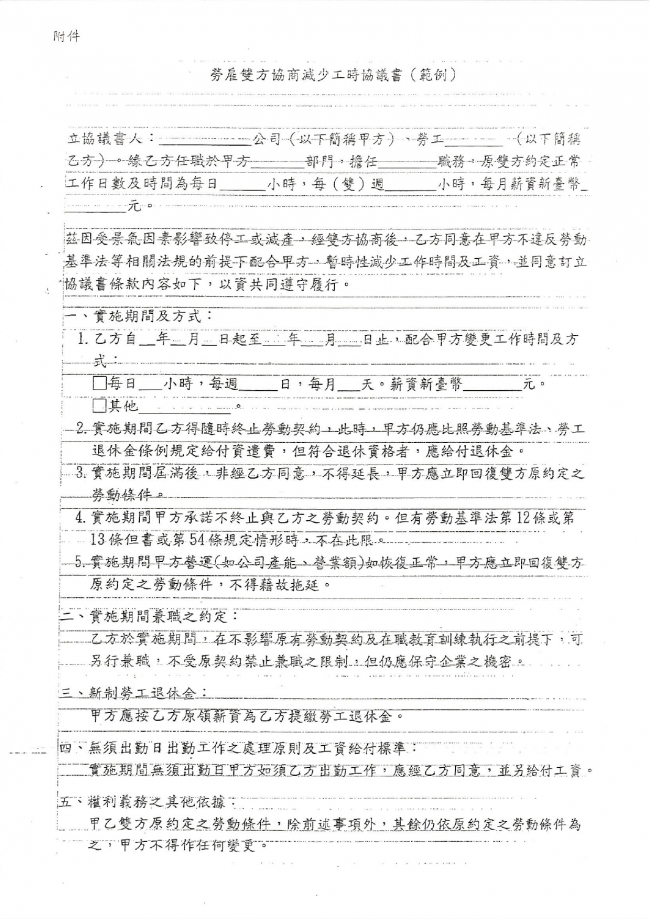 附件
勞雇雙方協商減少工時協議書（範例）
立協議書人：____________公司（以下簡稱甲方）、勞工________（以下簡稱
乙方）。緣乙方任職於甲方_______部門，擔任________職務。原雙方約定正常
工作日數及時間為每日______小時，每（雙）週_______小時，每月薪資新臺幣_
________元。
茲因受景氣因素影響致停工或減產，經雙方協商後，乙方同意在甲方不違反勞動
基準法等相關法規的前提下配合甲方，暫時性減少工作時間及工資，並同意訂立
協議書條款內容如下，以資共同遵守履行。
一、實施期間及方式：
1. 乙方自__年__月__日起至__年___月___日止，配合甲方變更工作時間及方
式：
□每日___小時，每週_____日，每月___天。薪資新臺幣________元。
□其他____________。
2. 實施期間乙方得隨時終止勞動契約，此時，甲方仍應比照勞動基準法、勞工
退休金條例規定給付資遣費，但符合退休資格者，應給付退休金。
3. 實施期間屆滿後，非經乙方同意，不得延長，甲方應立即回復雙方原約定之
勞動條件。
4. 實施期間甲方承諾不終止與乙方之勞動契約。但有勞動基準法第12條或第
13條但書或第54條規定情形時，不在此限。
5. 實施期間甲方營運(如公司產能、營業額)如恢復正常，甲方應立即回復雙方
原約定之勞動條件，不得藉故拖延。
二、實施期間兼職之約定：
乙方於實施期間，在不影響原有勞動契約及在職教育訓練執行之前提下，可
另行兼職，不受原契約禁止兼職之限制，但仍應保守企業之機密。
三、新制勞工退休金：
甲方應按乙方原領薪資為乙方提繳勞工退休金。
四、無須出勤日出勤工作之處理原則及工資給付標準：
實施期間無須出勤日甲方如須乙方出勤工作，應經乙方同意，並另給付工資。
五、權利義務之其他依據：
甲乙雙方原約定之勞動條件，除前述事項外，其餘仍依原約定之勞動條件為
之，甲方不得作任何變更。